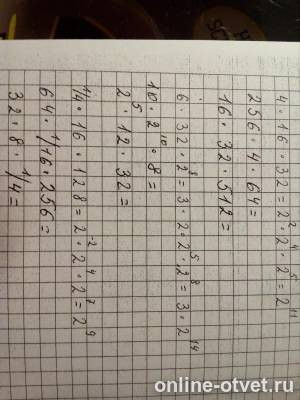 4 · 16 · 32 = 2² · 2⁴ · 2⁵ = 2¹¹
256 · 4 · 64 =
16 · 32 · 512 =
6 · 32 · 2⁸ = 3 · 2 · 2⁵ · 2⁸ = 3 · 2¹⁴
10 · 2¹⁰ · 8 =
2⁵ · 12 · 32 =
1/4 · 16 · 128 = 2⁻² · 2⁴ · 2⁷ = 2⁹
64 · 1/16 · 256 =
32 · 8 · 1/4 =
online-otvet.ru